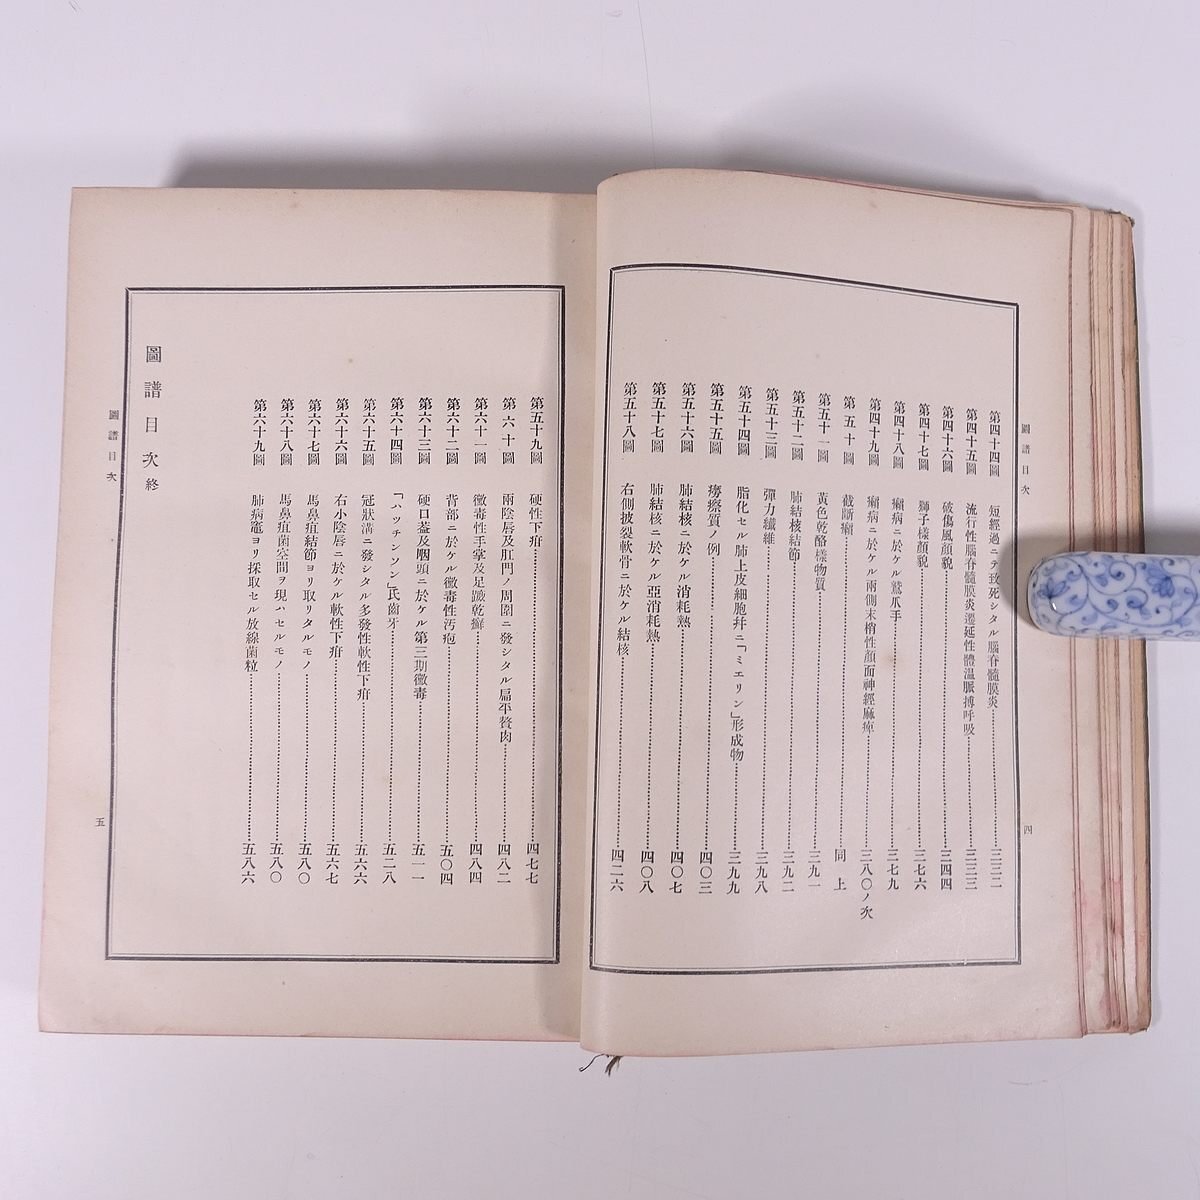 圖譜目次
四
第四十四圖 短經過ニテ致死シタル腦脊髓膜炎……三三二
第四十五圖 流行性腦脊髓膜炎遷延性體溫脈搏呼吸……三三三
第四十六圖 破傷風顏貌……三四四
第四十七圖 獅子樣顏貌……三七六
第四十八圖 癩病ニ於ケル鷲爪手……三七九
第四十九圖 癩病ニ於ケル兩側末梢性顏面神經麻痺……三八〇ノ次
第五十圖 截斷癩……同上
第五十一圖 黃色乾酪樣物質……三九一
第五十二圖 肺結核結節……三九二
第五十三圖 彈力纖維……三九八
第五十四圖 脂化セル肺上皮細胞幷ニ「ミエリン」形成物……三九九
第五十五圖 癆瘵質ノ例……四〇三
第五十六圖 肺結核ニ於ケル消耗熱……四〇七
第五十七圖 肺結核ニ於ケル亞消耗熱……四〇八
第五十八圖 右側披裂軟骨ニ於ケル結核……四二六
第五十九圖 硬性下疳……四七七
第六十圖 兩陰唇及肛門ノ周圍ニ發シタル扁平贅肉……四八二
第六十一圖 黴毒性手掌及足蹠乾癬……四八四
第六十二圖 背部ニ於ケル黴毒性汚疱……五〇四
第六十三圖 硬口蓋及咽頭ニ於ケル第三期黴毒……五一一
第六十四圖 「ハッチンソン」氏齒牙……五二八
第六十五圖 冠狀溝ニ發シタル多發性軟性下疳……五六六
第六十六圖 右小陰唇ニ於ケル軟性下疳……五六七
第六十七圖 馬鼻疽結節ヨリ取リタルモノ……五八〇
第六十八圖 馬鼻疽菌空間ヲ現ハセルモノ……五八〇
第六十九圖 肺病竈ヨリ採取セル放線菌粒……五八六
圖譜目次終
圖譜目次
五